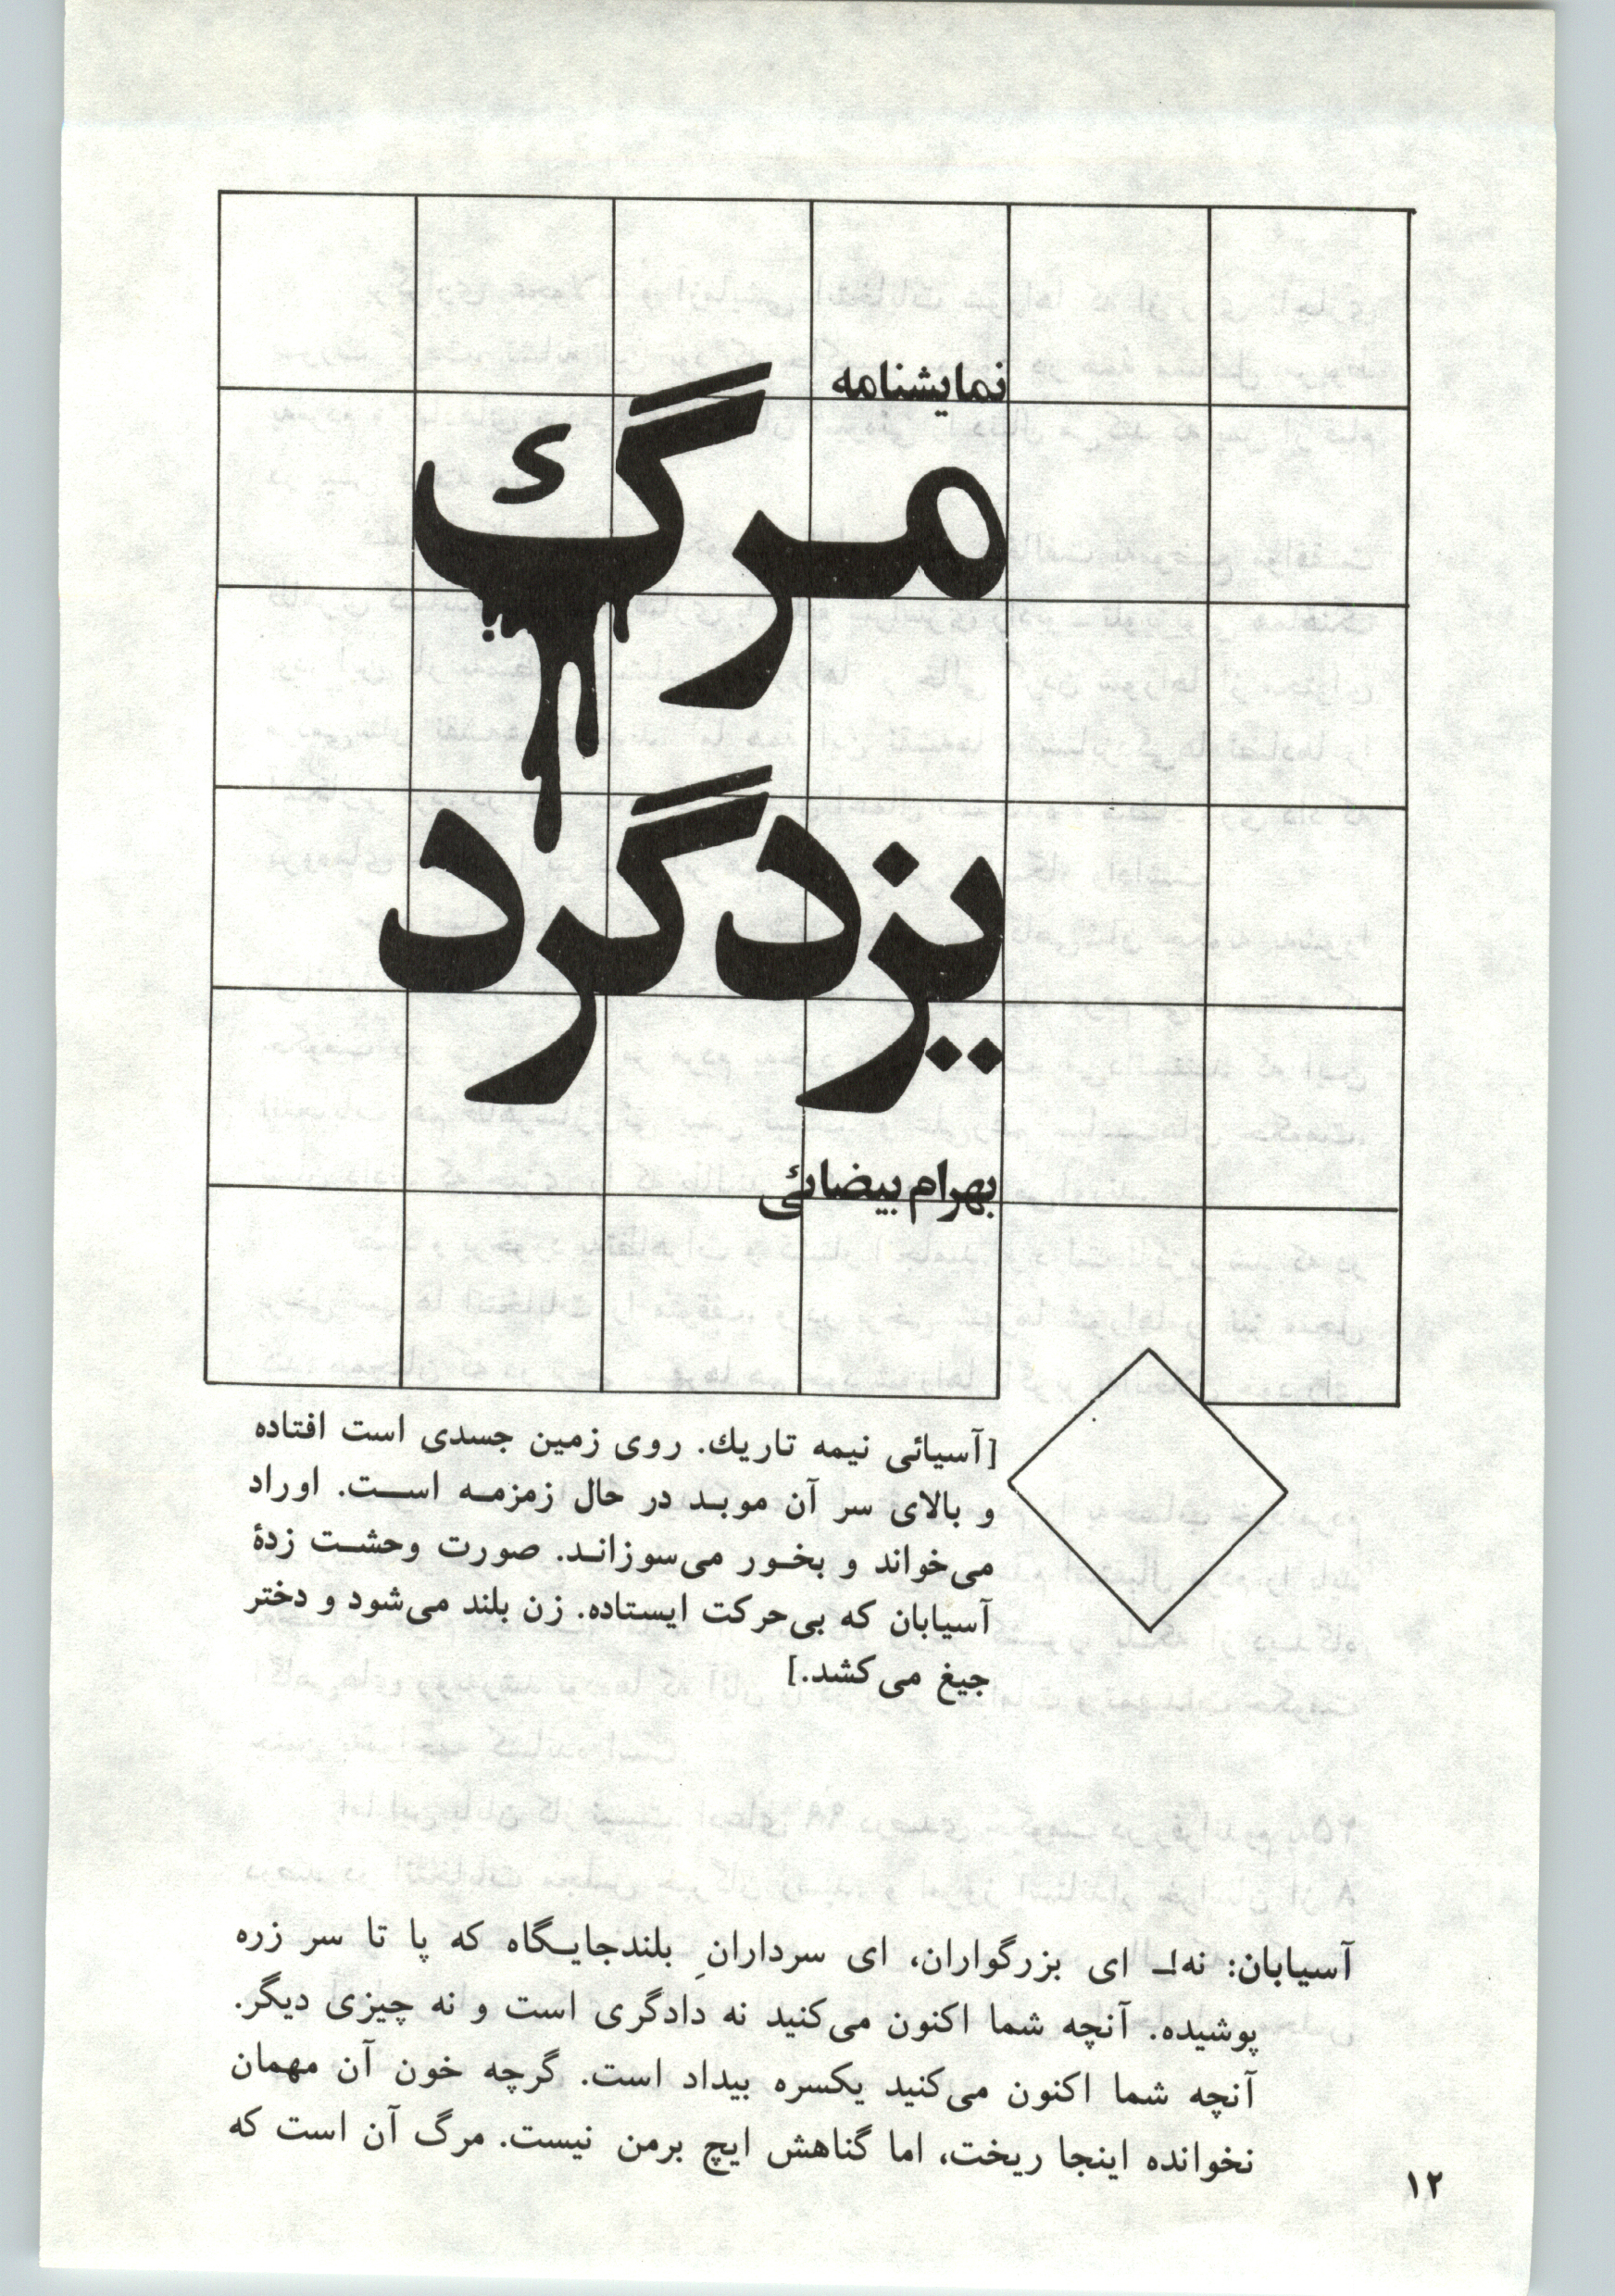 نمایشنامه
مرگ
یزدگرد
بهرام بیضائی
[آسیائی نیمه تاریك. روی زمین جسدی است افتاده
و بالای سر آن موبد در حال زمزمه است. اوراد
می‌خواند و بخور می‌سوزاند. صورت وحشت زدهٔ
آسیابان که بی‌حرکت ایستاده. زن بلند می‌شود و دختر
جیغ می‌کشد.]
آسیابان: نه!ـ ای بزرگواران، ای سردارانِ بلندجایگاه که پا تا سر زره
پوشیده. آنچه شما اکنون می‌کنید نه دادگری است و نه چیزی دیگر.
آنچه شما اکنون می‌کنید یکسره بیداد است. گرچه خون آن مهمان
نخوانده اینجا ریخت، اما گناهش ایچ برمن نیست. مرگ آن است که
۱۲